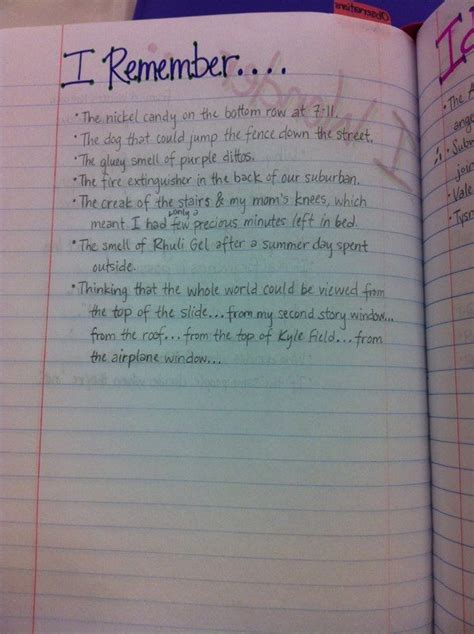 Observations
I Remember....
• The nickel candy on the bottom row at 7-11.
• The dog that could jump the fence down the street.
• The gluey smell of purple dittos.
• The fire extinguisher in the back of our suburban.
• The creak of the stairs & my mom's knees, which
only
meant I had few precious minutes left in bed.
• The smell of Rhuli Gel after a summer day spent
outside.
• Thinking that the whole world could be viewed from
the top of the slide...from my second story window...
from the roof...from the top of Kyle Field...from
the airplane window...
I Wonder
• The
• Subw
jour
• Vale
• Tyso